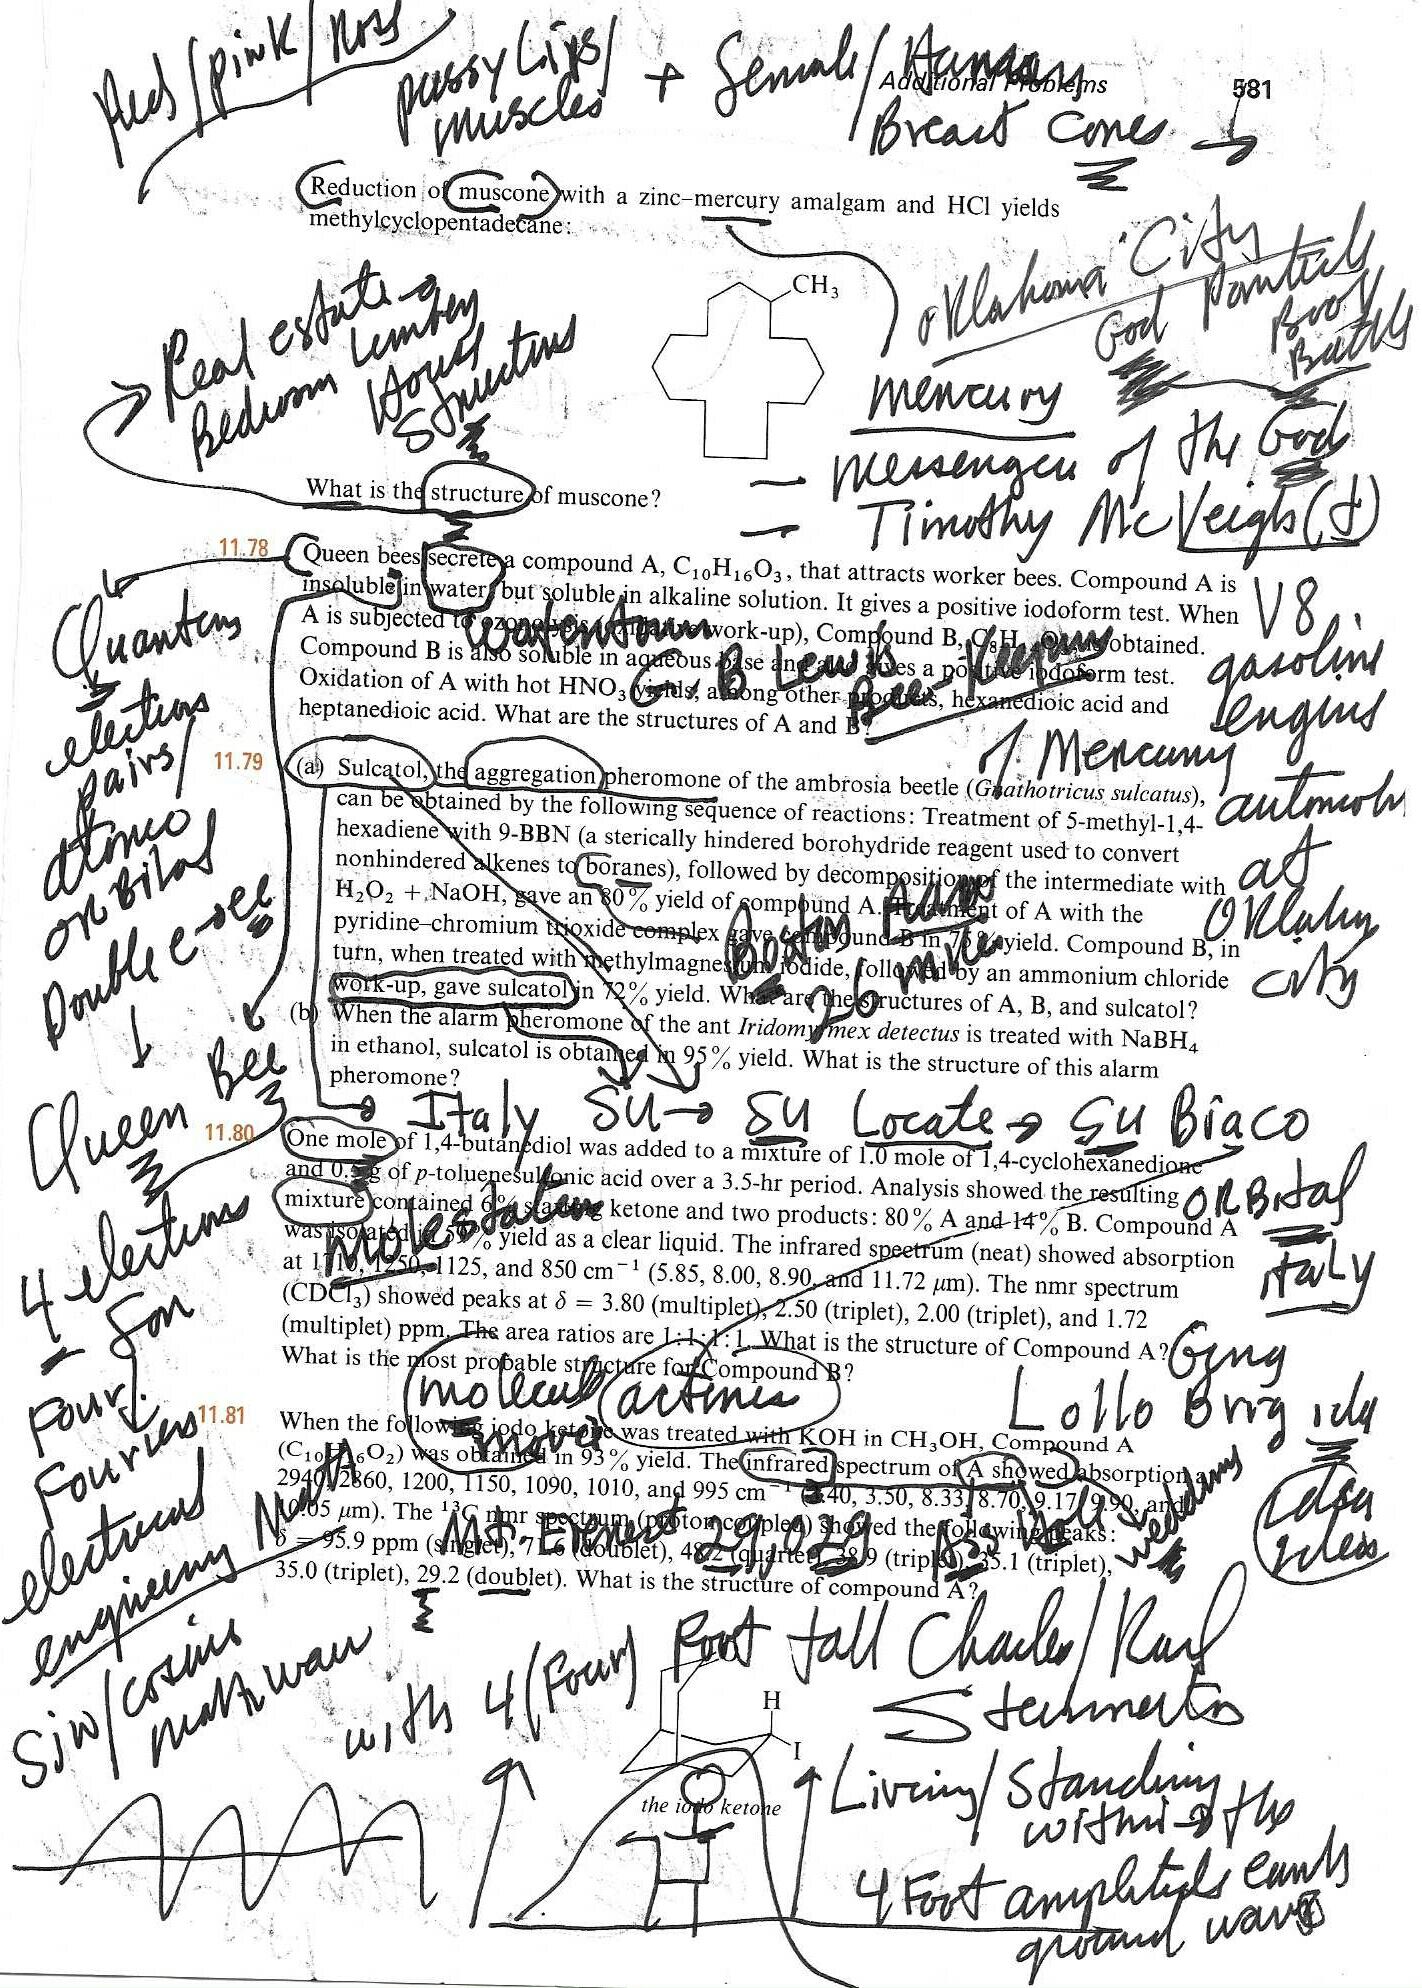 Reds/pink/Ross
pussy Lips/
muscles
+ female/Human
Additional Problems 581
Breast Cones →
Reduction of muscone with a zinc–mercury amalgam and HCl yields
methylcyclopentadecane:
CH3
Oklahoma City
God
Mercury
Real estate
Bedroom
House
Structures
— Messenger of the God
What is the structure of muscone?
— Timothy McVeigh
11.78 Queen bees secrete a compound A, C10H16O3, that attracts worker bees. Compound A is
insoluble in water, but soluble in alkaline solution. It gives a positive iodoform test. When
A is subjected to work-up), Compound B, obtained.
Compound B is also soluble in aqueous base and also gives a positive iodoform test.
Oxidation of A with hot HNO3 yields, among other products, hexanedioic acid and
heptanedioic acid. What are the structures of A and B?
V8
gasoline
engines
of Mercury
automob
at
Oklahom
City
Quantum
electrons
pairs/
atomic
orbital
Double e-
↓
Queen Bee
4 electrons
Four
Fouriers
electrical
engineering Math
Sin/cosine
math wave
G. B Lewis
11.79 (a) Sulcatol, the aggregation pheromone of the ambrosia beetle (Gnathotricus sulcatus),
can be obtained by the following sequence of reactions: Treatment of 5-methyl-1,4-
hexadiene with 9-BBN (a sterically hindered borohydride reagent used to convert
nonhindered alkenes to boranes), followed by decomposition of the intermediate with
H2O2 + NaOH, gave an 80% yield of compound A. Treatment of A with the
pyridine–chromium trioxide complex gave compound B in 75% yield. Compound B, in
turn, when treated with methylmagnesium iodide, followed by an ammonium chloride
work-up, gave sulcatol in 72% yield. What are the structures of A, B, and sulcatol?
Boston
26 mile
(b) When the alarm pheromone of the ant Iridomyrmex detectus is treated with NaBH4
in ethanol, sulcatol is obtained in 95% yield. What is the structure of this alarm
pheromone?
Italy SU → SU Locate → SU Biaco
11.80 One mole of 1,4-butanediol was added to a mixture of 1.0 mole of 1,4-cyclohexanedione
and 0.5 g of p-toluenesulfonic acid over a 3.5-hr period. Analysis showed the resulting
mixture contained 6% starting ketone and two products: 80% A and 14% B. Compound A
was isolated in yield as a clear liquid. The infrared spectrum (neat) showed absorption
at 1710, 1250, 1125, and 850 cm−1 (5.85, 8.00, 8.90, and 11.72 μm). The nmr spectrum
(CDCl3) showed peaks at δ = 3.80 (multiplet), 2.50 (triplet), 2.00 (triplet), and 1.72
(multiplet) ppm. The area ratios are 1:1:1:1. What is the structure of Compound A?
What is the most probable structure for Compound B?
ORBital
italy
Gina
Lollo Brigida
molecul
movie
11.81 When the following iodo ketone was treated with KOH in CH3OH, Compound A
(C10H16O2) was obtained in 93% yield. The infrared spectrum of A showed absorption at
2940, 2860, 1200, 1150, 1090, 1010, and 995 cm−1 (3.40, 3.50, 8.33, 8.70, 9.17, 9.90, and
10.05 μm). The 13C nmr spectrum (proton coupled) showed the following peaks:
δ = 95.9 ppm (singlet), 71.6 (doublet), 48.2 (quartet), 38.9 (triplet), 35.1 (triplet),
35.0 (triplet), 29.2 (doublet). What is the structure of compound A?
Mt. Everest 29,029
wedding
idea
with 4 (Four) Foot tall Charles/Karl
Steinmetz
H
I
the iodo ketone
Living/Standing
within → the
4 Foot amplitude earth
ground waves